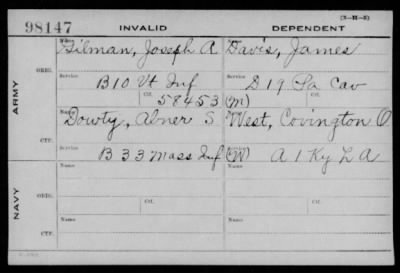 (3-M-5)
98147 INVALID DEPENDENT
Name
Gilman, Joseph A Davis, James
ARMY
ORIG.
Service Service
B 10 Vt Inf D 19 Pa Cav
Ctf. 58453 Ctf. (M)
CTF.
Name
Dowty, Abner S West, Covington O
Service
B 33 Mass Inf (W) A 1 Ky L A
NAVY
ORIG.
Name Name
Service Service
Ctf. Ctf.
CTF.
Name Name